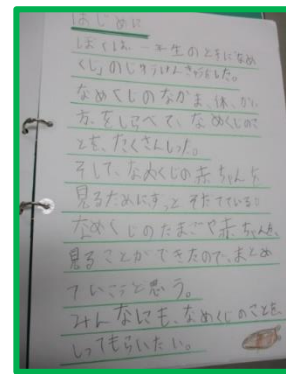 はじめに
ぼくは一年生のときに「なめ
くじ」のじゆうけんきゅうをした。
なめくじのなかま、体、かい
方をしらべて、なめくじのこ
とを、たくさんしった。
そして、なめくじの赤ちゃんも
見るためにずっとそだてている。
なめくじのたまごや赤ちゃんを、
見ることができたので、まとめ
ていこうと思う。
みんなにも、なめくじのことを、
しってもらいたい。